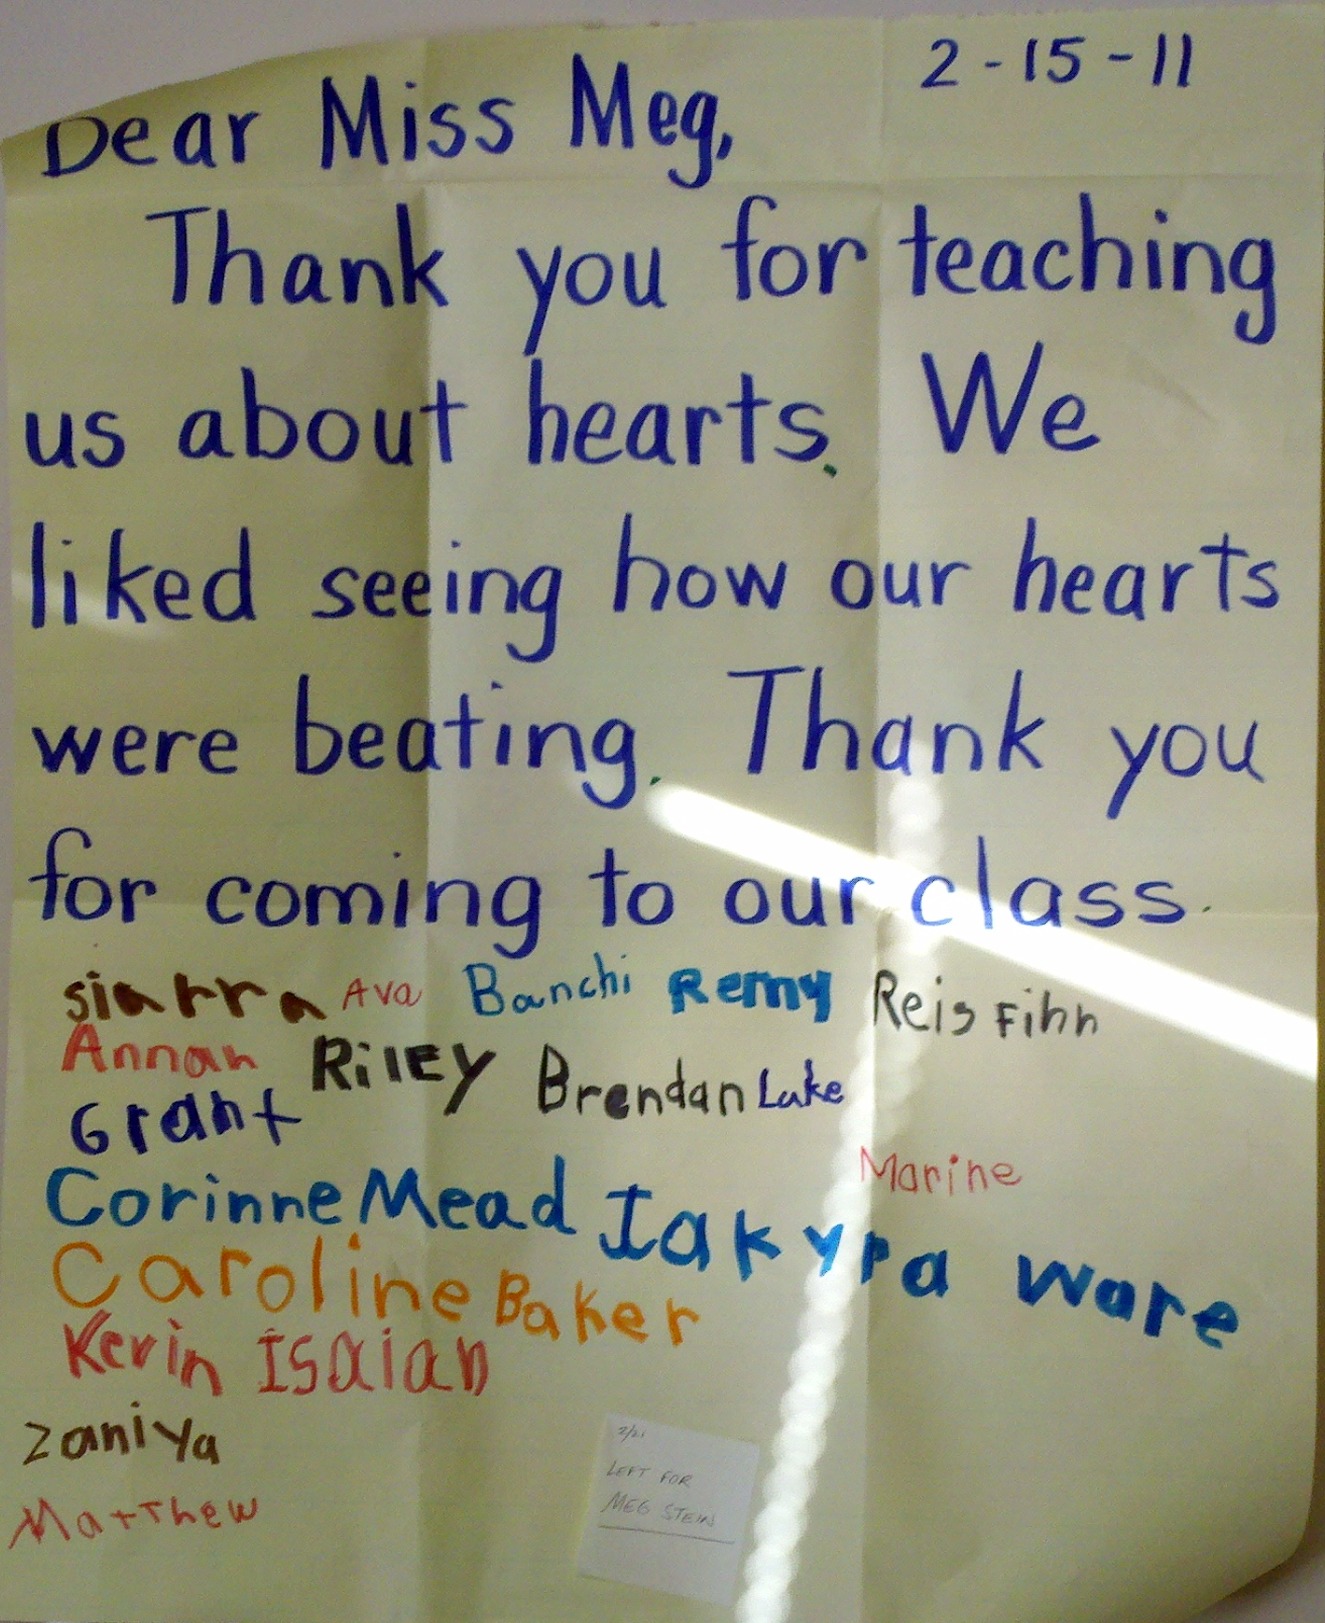 2-15-11
Dear Miss Meg,
Thank you for teaching
us about hearts. We
liked seeing how our hearts
were beating. Thank you
for coming to our class.
siarra Ava Banchi Remy Reis Finn
Annah Riley Brendan Luke
Grant
Marine
Corinne Mead Iakyra Ware
Caroline Baker
Kevin Isaiah
Zaniya
Matthew
2/21
LEFT FOR
MEG STEIN